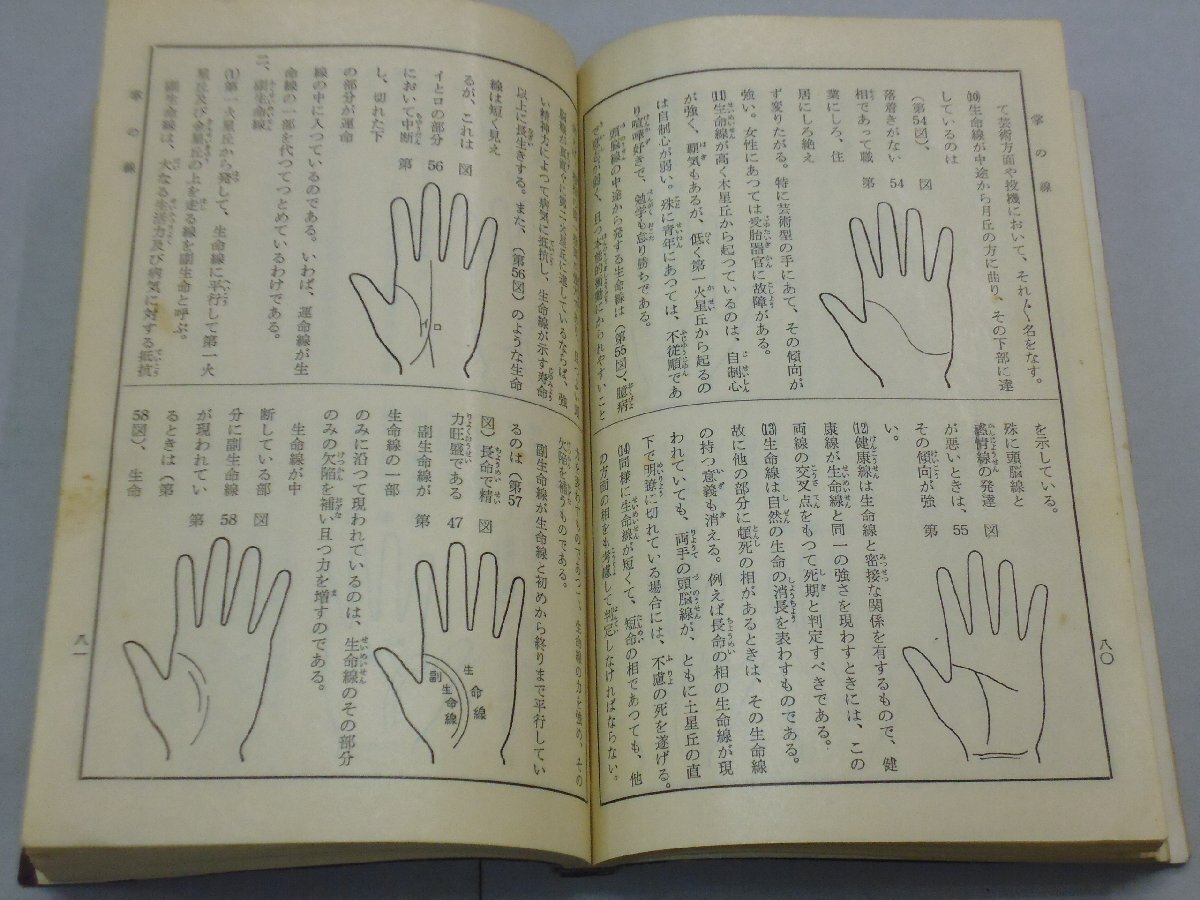 掌の線
て芸術方面や投機において、それ〲名をなす。
⑽生命線が中途から月丘の方に曲り、その下部に達
しているのは
（第54図）、
落着きがない
相であって職
業にしろ、住
居にしろ絶え
第54図
ず変りたがる。特に芸術型の手にあて、その傾向が
強い。女性にあつては受胎器官に故障がある。
⑾生命線が高く木星丘から起つているのは、自制心
が強く、覇気もあるが、低く第一火星丘から起るの
は自制心が弱い。殊に青年にあつては、不従順であ
り喧嘩好きで、勉学も怠り勝ちである。
頭脳線の中途から発する生命線は（第55図）、臆病
で意志が弱く、且つ本能的
にかられやすいこと
を示している。
殊に頭脳線と
感情線の発達
が悪いときは、
その傾向が強
第55図
い。
⑿健康線は生命線と密接な関係を有するもので、健
康線が生命線と同一の強さを現わすときには、この
両線の交叉点をもつて死期と判定すべきである。
⒀生命線は自然の生命の消長を表わすものである。
故に他の部分に頓死の相があるときは、その生命線
の持つ意義も消える。例えば長命の相の生命線が現
われていても、両手の頭脳線が、ともに土星丘の直
下で明瞭に切れている場合には、不慮の死を遂げる。
⒁同様に生命線が短くて、短命の相であつても、他
の方面の相をも考慮して判定しなければならない。
八〇
に達しているならば、強
い精神力によつて病気に抵抗し、生命線が示す寿命
以上に長生きする。また、（第56図）のような生命
線は短く見え
るが、これは
イとロの部分
において中断
し、切れた下
の部分が運命
第56図
イ
ロ
線の中に入つているのである。いわば、運命線が生
命線の一部を代つてつとめているわけである。
二、副生命線
⑴第一火星丘から発して、生命線に平行して第一火
星丘及び金星丘の上を走る線を副生命と呼ぶ。
副生命線は、大なる生活力及び病気に対する抵抗
掌の線
力をあわすものであつて、生命線の力を強め、その
欠陥を補うものである。
副生命線が生命線と初めから終りまで平行してい
るのは（第57
図）長命で精
力旺盛である
副生命線が
生命線の一部
第47図
生命線
副生命線
のみに沿つて現われているのは、生命線のその部分
のみの欠陥を補い且つ力を増すのである。
生命線が中
断している部
分に副生命線
が現われてい
るときは（第
58図）、生命
第58図
八一